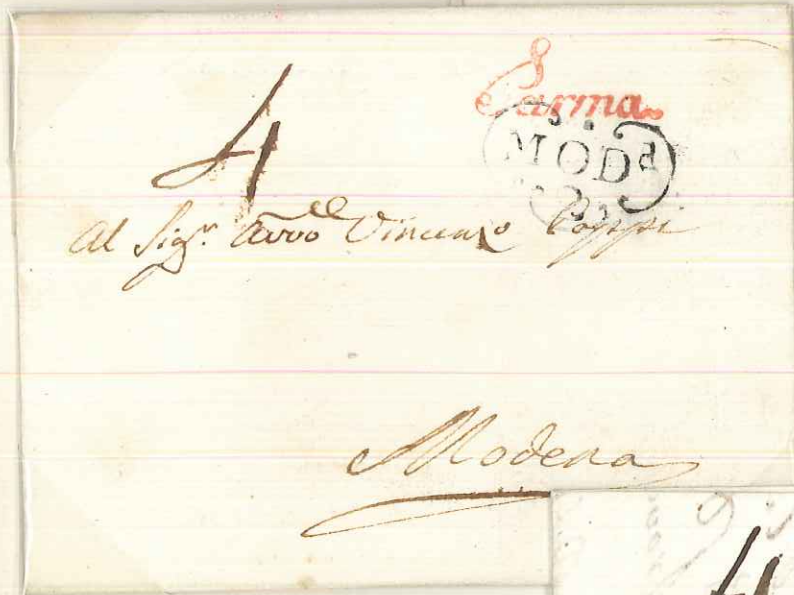 Parma
4
MOD^a
Al Sig.^r Avvo Vincenzo Coppi
Modena
4